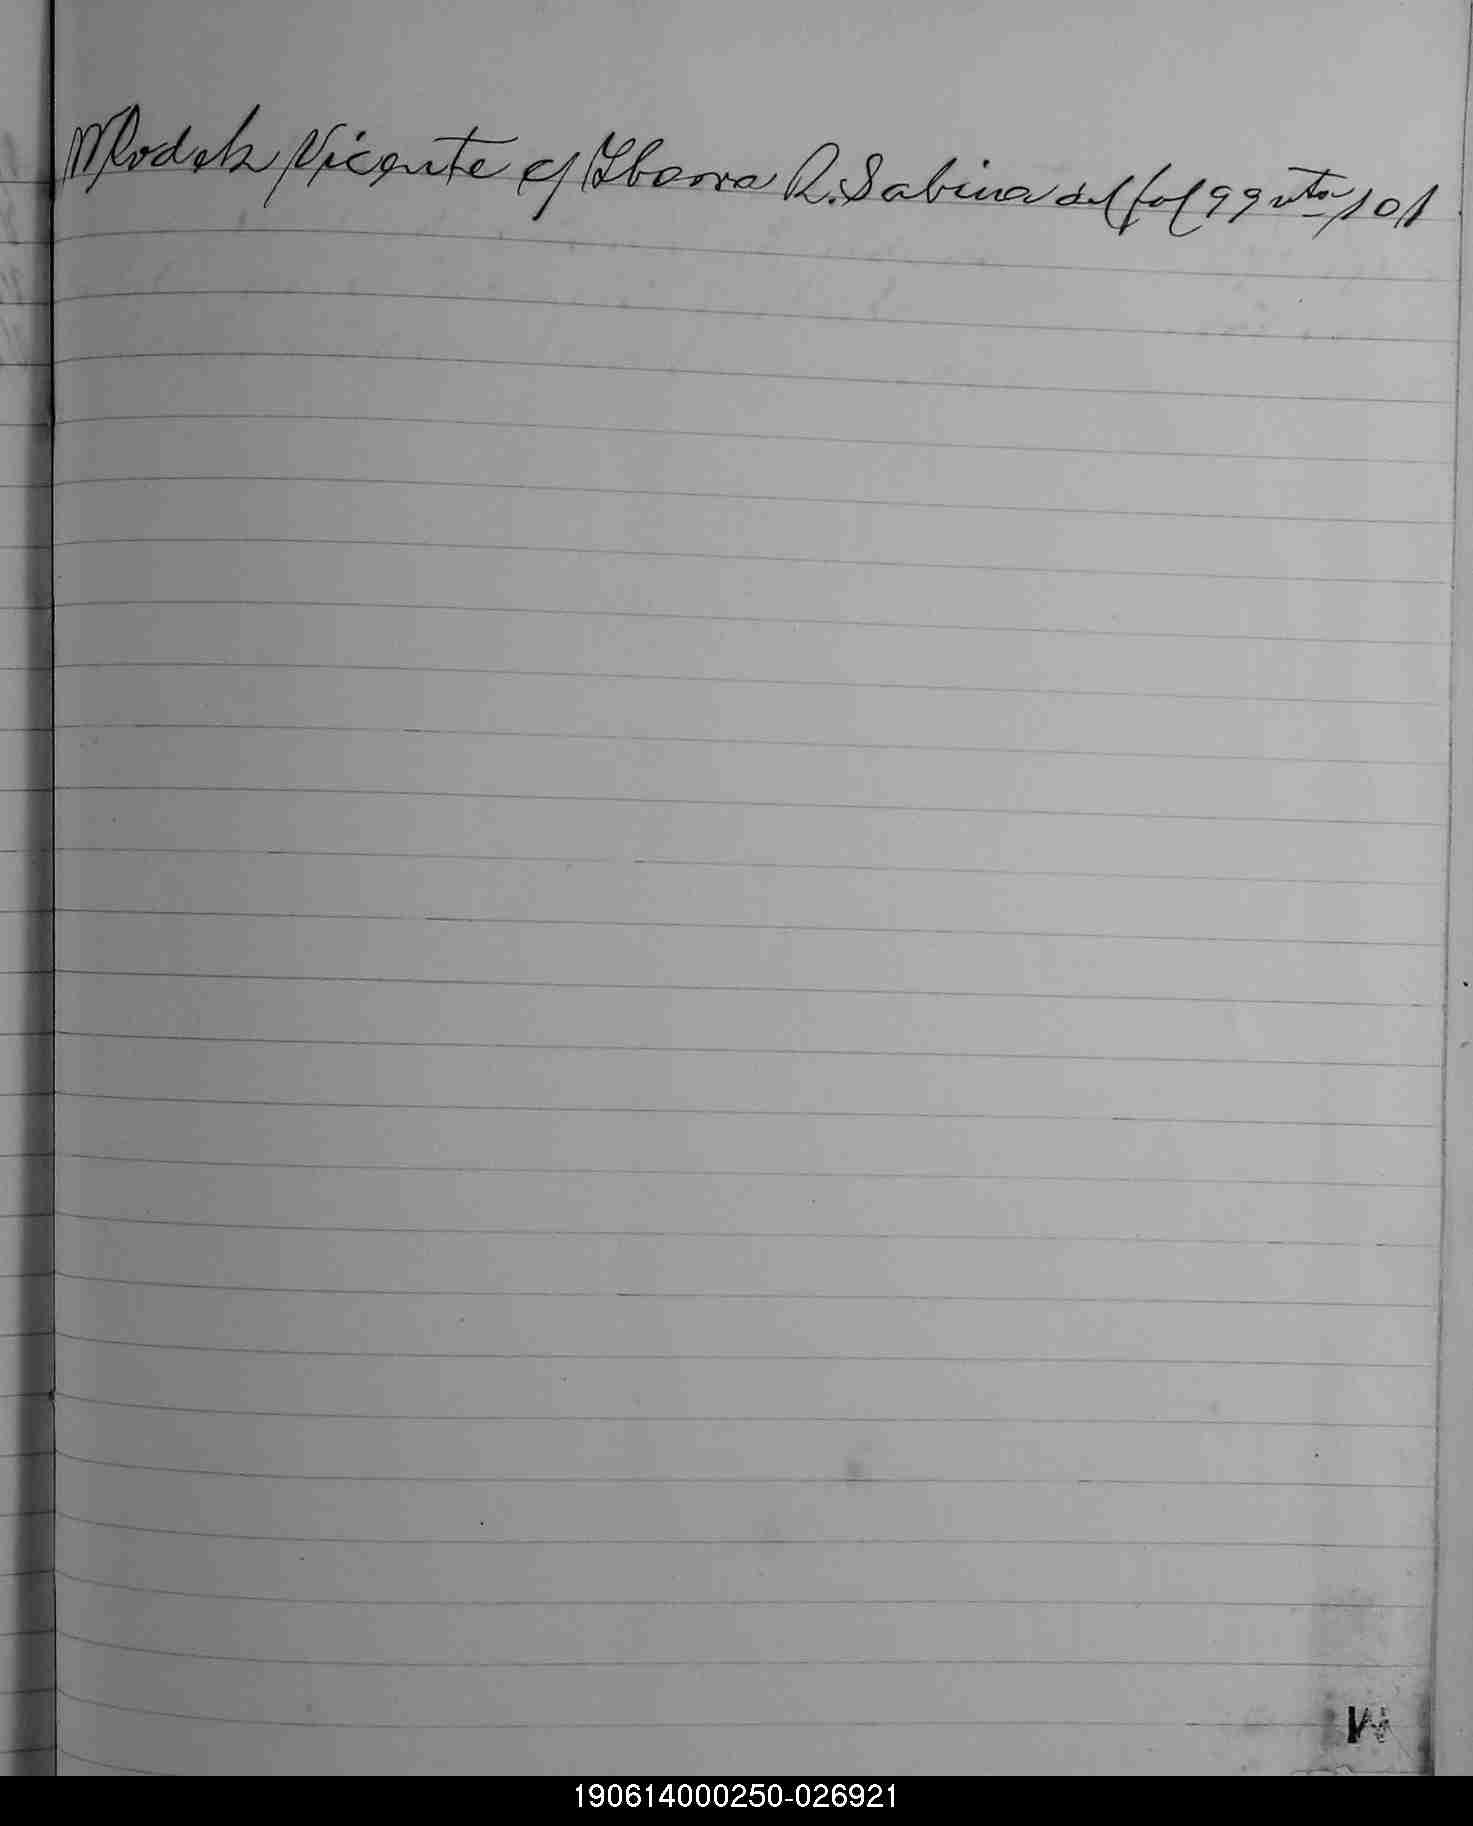 Mlodek Vicente c/ Ibarra R. Sabina del fol 99 vto 101
M
190614000250-026921